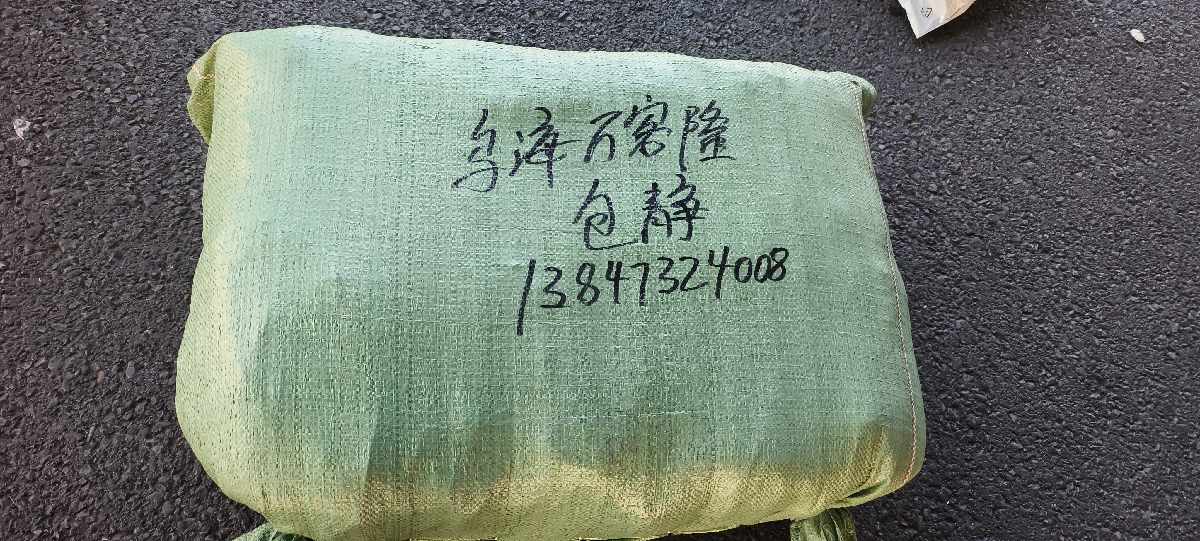 乌海万客隆
包静
13847324008